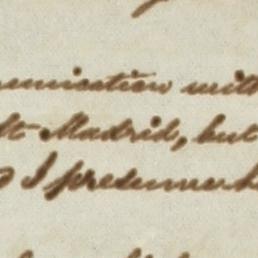 munication with
At Madrid, but
I presume h